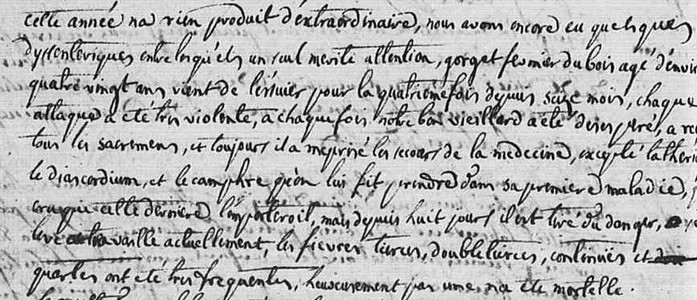 cette année na rien produit d'extraordinaire, nous avons encore eu quelques
dyssenteriques entre lesquels un seul merite attention, gorget fermier du bois agé d'envi
quatre vingt ans vient de l'essuier pour la quatrieme fois depuis seize mois, chaque
attaque a eté tres violente, a chaque fois notre bon vieillard a eté desesperé, a re
tous les sacremens, et toujours il a meprisé les secours de la medecine, excepté la theri
le diascordium, et le camphre qu'on lui fit prendre dans sa premiere maladie, j
cru que cette derniere l'emporteroit, mais depuis huit jours il est tiré du danger,
leve travaille actuellement, les fievres tierces, doubletierces, continües et
quartes ont eté tres frequentes, heureusement pas une na eté mortelle.